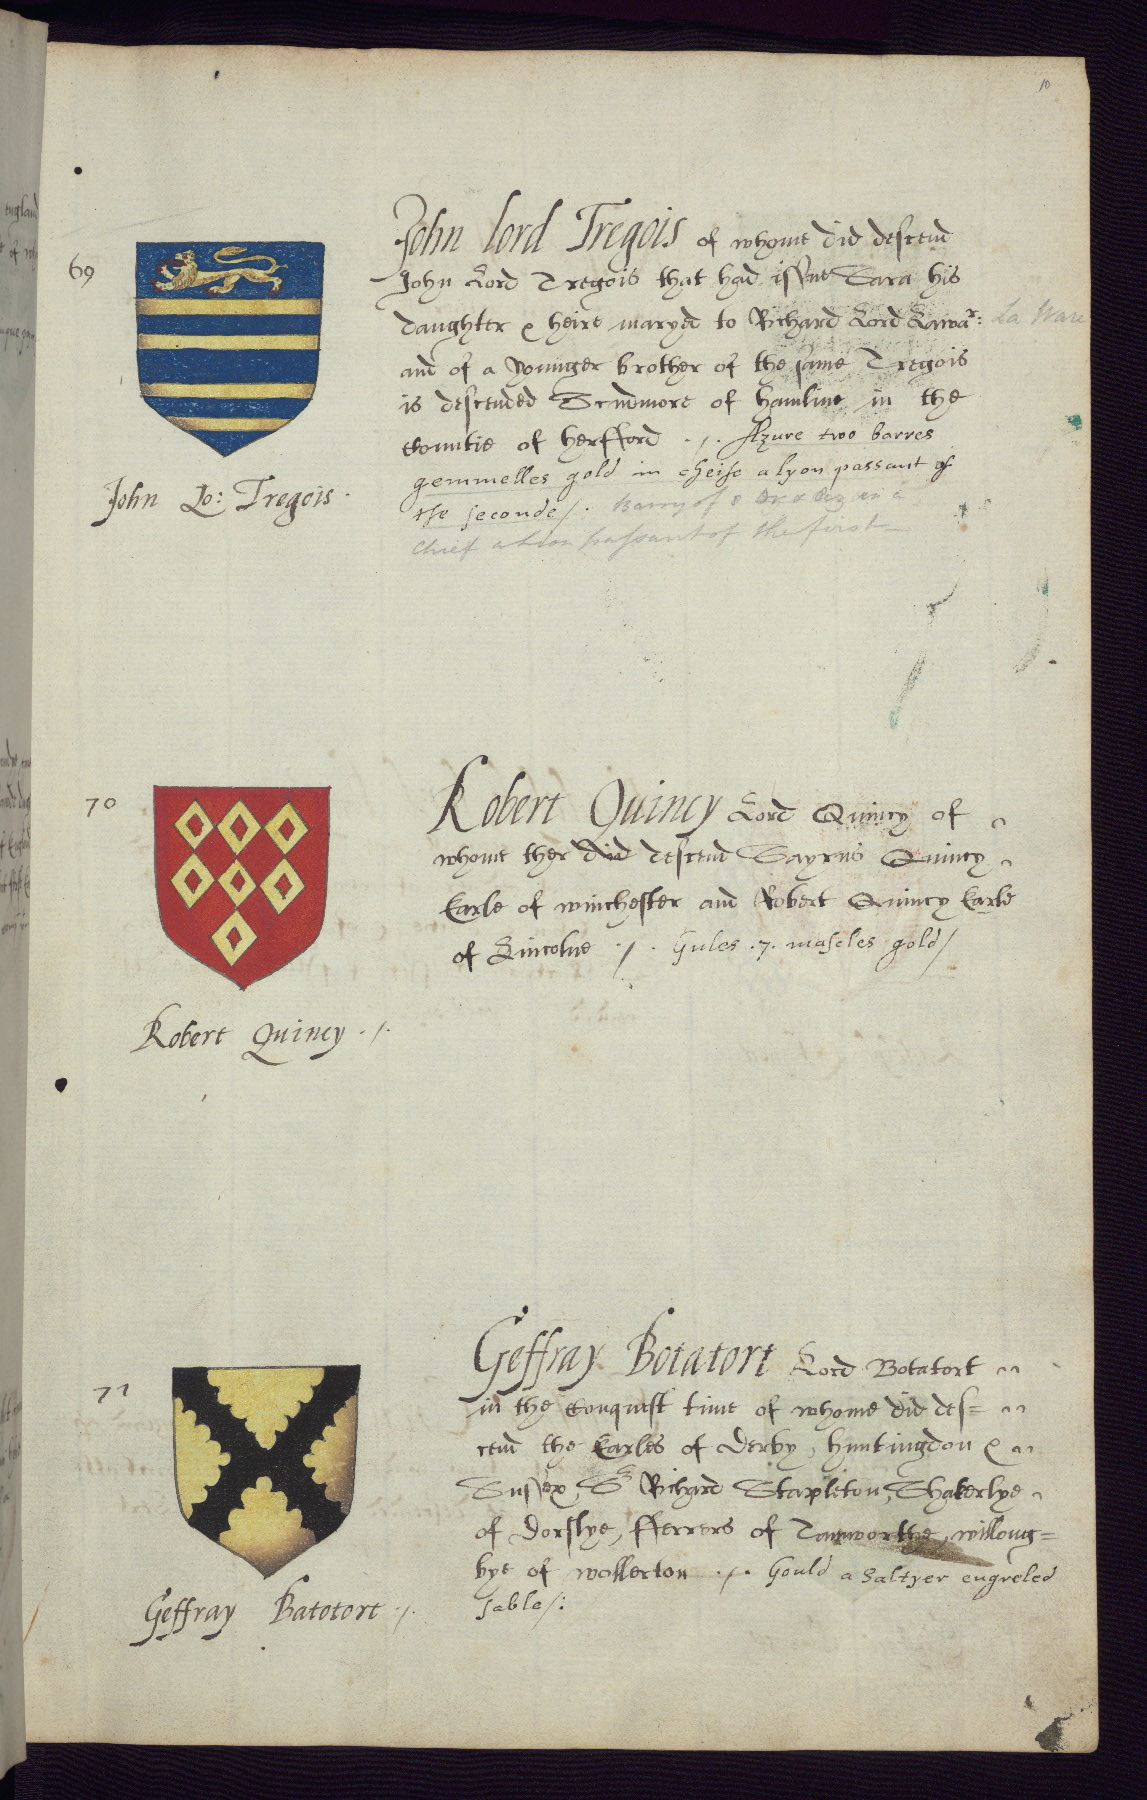 10
69
John lord Tregois of whome did descend
John Lord Tregois that had issue Sara his
daughter & heire maryed to Richard Lord Lawar: La Ware
and of a younger brother of the same Tregois
is descended Scudmore of hamline in the
Countie of herfford ./. Azure two barres
gemmelles gold in cheife a lyon passant of
the seconde/. Barry of 8 Or & Az in a
Chief a Lion passant of the first
John Lo: Tregois.
70
Robert Quincy Lord Quincy of
whome ther did descend Sayrus Quincy
Earle of winchester and Robert Quincy Earle
of Lincolne ./. Gules .7. mascles gold/
Robert Quincy ./.
71
Geffray Botatort Lord Botatort
in the Conquest time of whome did des=
cend the Earles of Derby, huntingdon &
Sussex, Sr Richard Stapleton, Shakerlye
of Dorslye, fferrers of Tamworthe, willoug=
bye of wollerton ./. Gould a Saltyer engreled
sable/:
Geffray Batotort ./.